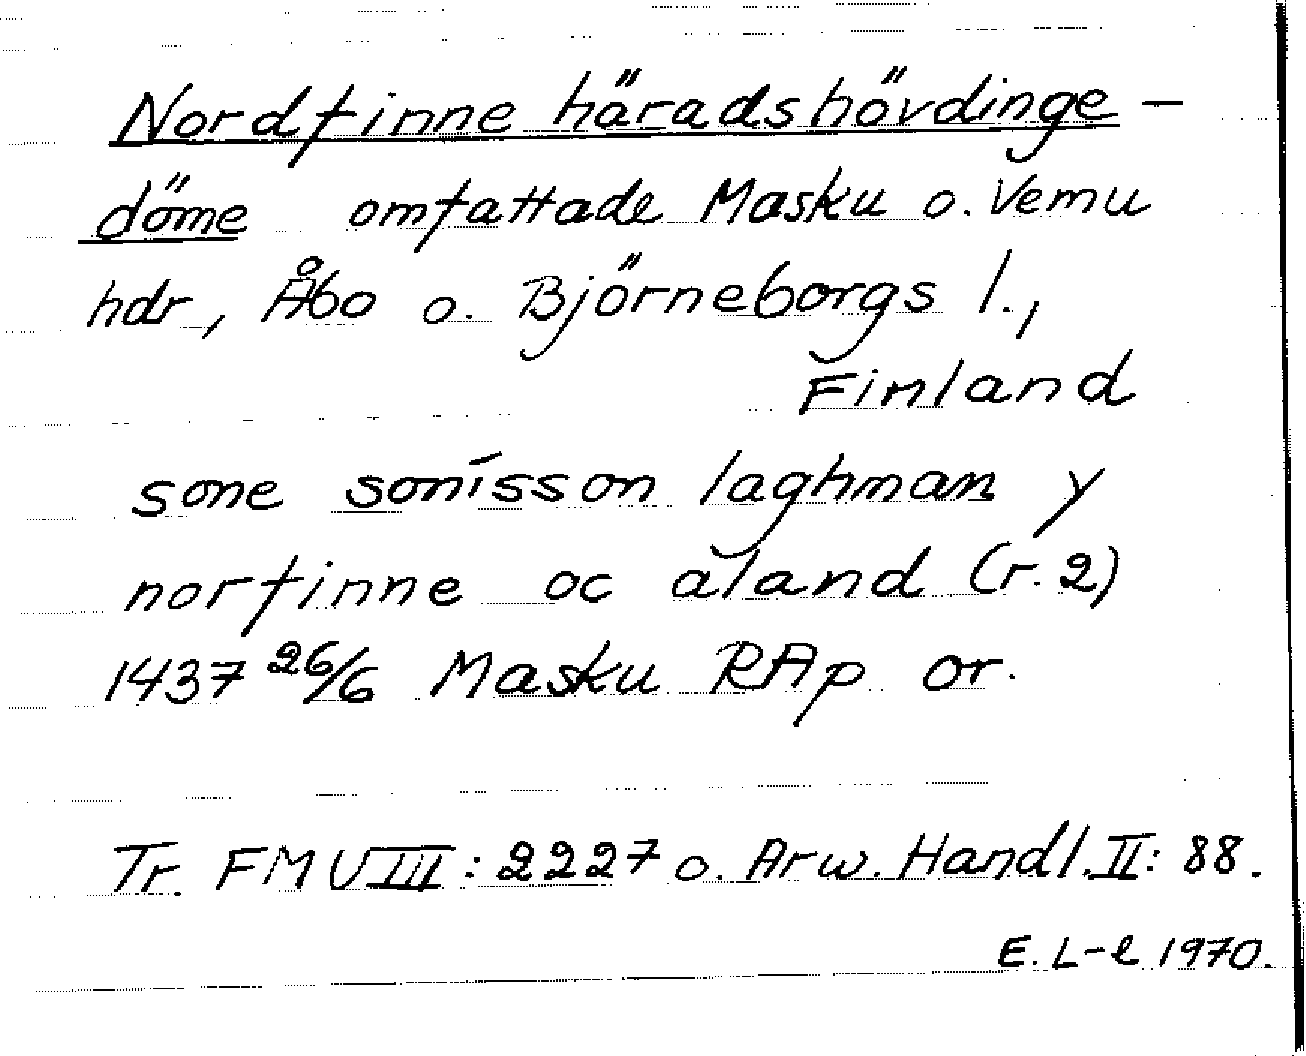 Nordfinne häradshövdinge-
döme omfattade Masku o. Vemu
hdr, Åbo o. Björneborgs l.,
Finland
sone sonísson laghman y
norfinne oc aland (r. 2)
1437 26/6 Masku RAp or.
Tr. FMU III: 2227 o. Arw. Handl. II: 88.
E. L-l 1970.